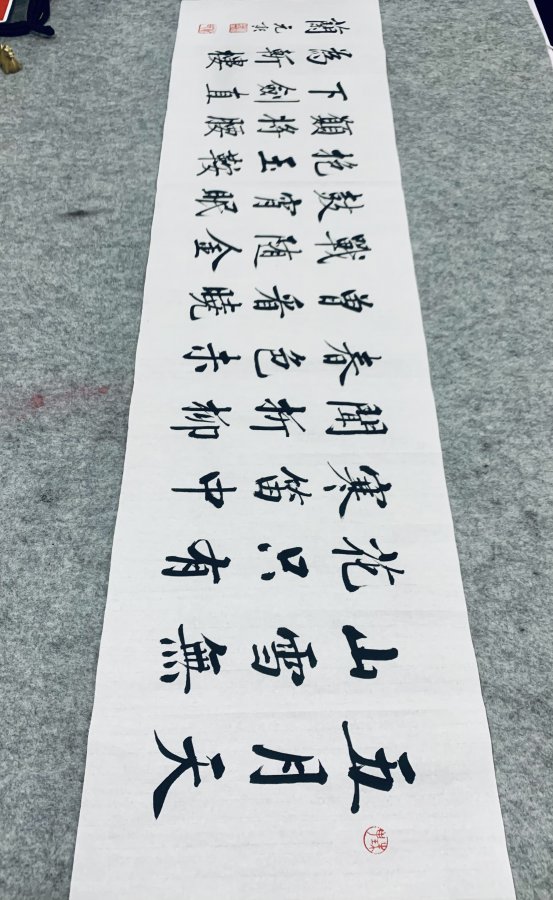 五月天
山雪無
花只有
寒笛中
聞折柳
春色未
曾看曉
戰隨金
鼓宵眠
抱玉鞍
願將腰
下劍直
為斬樓
蘭